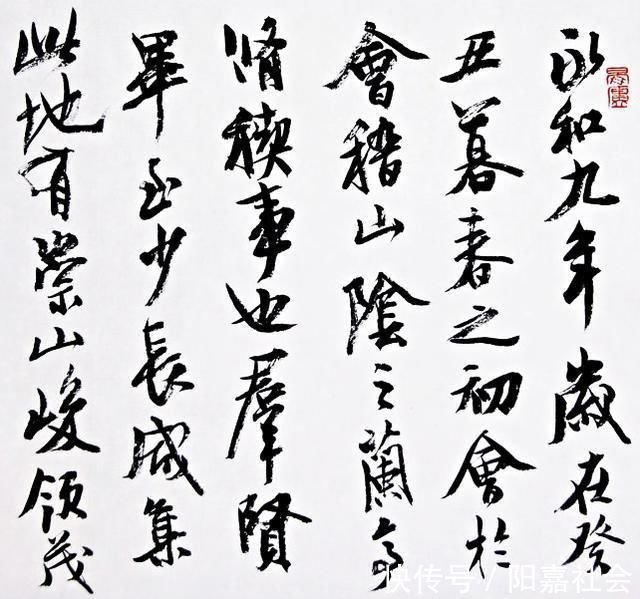 永和九年歲在癸
丑暮春之初會於
會稽山陰之蘭亭
脩稧事也羣賢
畢至少長咸集
此地有崇山峻領茂
快传号/阳嘉社会